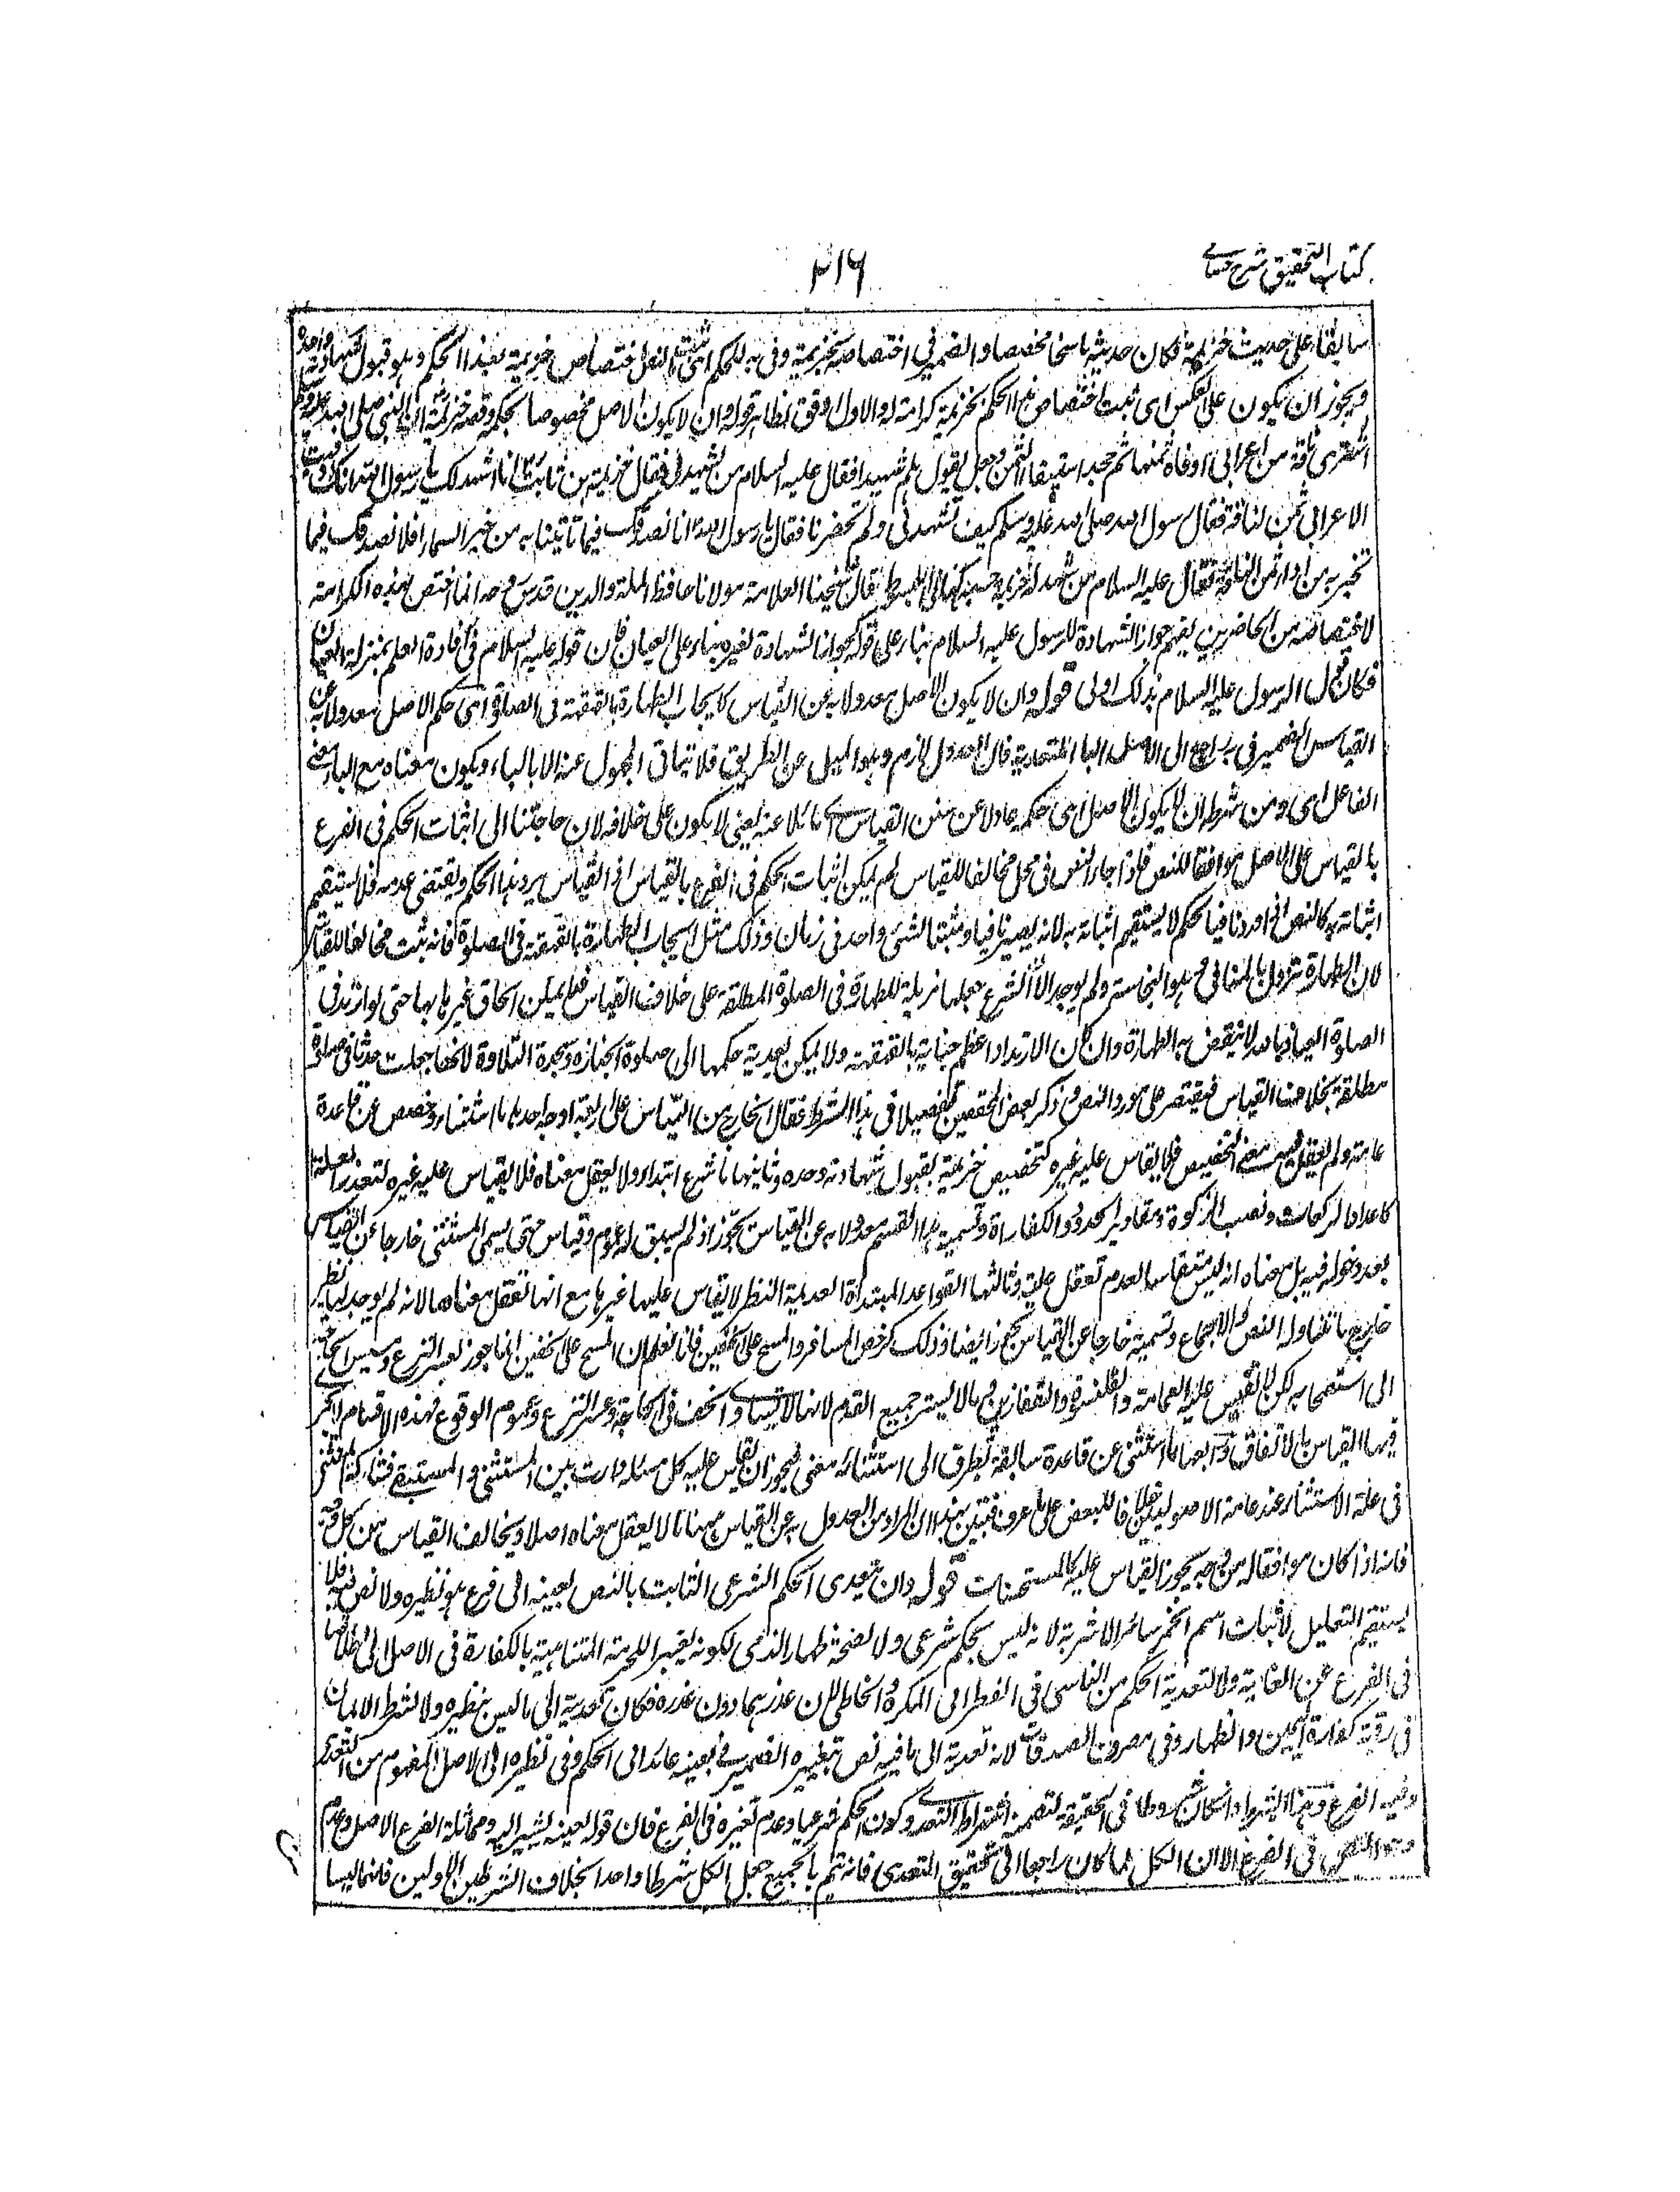 كتاب التحقيق شرح حسامى
٢١٦
سابقا على حديث خزيمة فكان حديثه ناسخا مخصصا والضمير فى اختصاصه لخزيمة وفى به للحكم اى ثبت بالنص اختصاص خزيمة بهذا الحكم وهو قبول شهادته وحده
ويجوز ان يكون على العكس اى ثبت اختصاص هذا الحكم بخزيمة كرامة له والاول اوفق لظاهر قوله وان لا يكون الاصل مخصوصا بحكمه وقصة خزيمة ان النبى صلى الله عليه وسلم
اشترى ناقة من اعرابى واوفاه ثمنها ثم جحد استيفاء الثمن وجعل يقول هلم شهيدا فقال عليه السلام من يشهد لى فقال خزيمة بن ثابت انا اشهد لك يا رسول الله انك وفيت
الاعرابى ثمن الناقة فقال رسول الله صلى الله عليه وسلم كيف تشهد لى ولم تحضرنا فقال يا رسول الله انا نصدقك فيما تأتينا به من خبر السماء افلا نصدقك فيما
تخبر به من اداء ثمن الناقة فقال عليه السلام من شهد له خزيمة فحسبه كذا فى المبسوط قال شيخنا العلامة مولانا حافظ الملة والدين قدس روحه انما اختص بهذه الكرامة
لاختصاصه من الحاضرين بفهم جواز الشهادة للرسول عليه السلام بناء على قوله كجواز الشهادة لغيره بناء على العيان فان قوله عليه السلام فى افادة العلم بمنزلة العيان
فكان قول الرسول عليه السلام بذلك اولى قوله وان لا يكون الاصل معدولا به عن القياس كايجاب الطهارة بالقهقهة فى الصلوة اى حكم الاصل معدولا به عن
القياس الضمير فى به راجع الى الاصل والباء للتعدية فان العدول لازم وهو الميل عن الطريق فلا يتأتى المجهول عنه الا بالباء ويكون معناه مع الباء معنى
الفاعل اى ومن شرطه ان لا يكون الاصل اى حكمه عادلا عن سنن القياس اى مائلا عنه يعنى لا يكون على خلافه لان حاجتنا الى اثبات الحكم فى الفرع
بالقياس على الاصل موافقا للنص فاذا جاء النص فى محل مخالفا للقياس لم يمكن اثبات الحكم فى الفرع بالقياس اذ القياس يرد هذا الحكم ويقتضى عدمه فلا يستقيم
اثباته به كالنص اذا ورد نافيا لحكم لا يستقيم اثباته به لانه يصير نافيا ومثبتا لشئ واحد فى زمان وذلك مثل ايجاب الطهارة بالقهقهة فى الصلوة فانه ثبت مخالفا للقياس
لان الطهارة تزول بالمنافى وهو النجاسة ولم يوجد الا ان الشرع جعلها مزيلة للطهارة فى الصلوة المطلقة على خلاف القياس فلم يمكن الحاق غيرها بها حتى لو ارتد فى
الصلوة العياذ بالله لا ينتقض به الطهارة وان كان الارتداد اعظم جناية بالقهقهة ولا يمكن تعدية حكمها الى صلوة الجنازة وسجدة التلاوة لانها جعلت حدثا فى صلوة
مطلقة بخلاف القياس فيقتصر على مورد النص وذكر بعض المحققين تفصيلا فى هذا الشرط فقال الخارج من القياس على اربعة اوجه احدها ما استثنى وخصص عن قاعدة
عامة ولم يعقل فيه معنى التخصيص فلا يقاس عليه غيره كتخصيص خزيمة بقبول شهادته وحده وثانيها ما شرع ابتداء ولا يعقل معناه فلا يقاس عليه غيره لتعذر العلة
كاعداد الركعات ونصب الزكوة ومقادير الحدود والكفارات وتسمية هذا القسم معدولا به عن القياس تجوز اذ لم يسبق له عموم وقياس حتى يسمى المستثنى خارجا عن القياس
بعد دخوله فيه بل معناه انه ليس منقاسا لعدم تعقل علته وثالثها القواعد المبتدأة العديمة النظير لا يقاس عليها غيرها مع انها تعقل معناها لانه لم يوجد لها نظير
خارج ما تناوله النص والاجماع وتسميته خارجا عن القياس تجوز ايضا وذلك كرخص المسافر والمسح على الخفين فانا نعلم ان المسح على الخفين انما جوز لعسر النزع ومسيس الحاجة
الى استصحابه لكن لا نقيس عليه العمامة والقلنسوة والقفازين وما لا يستر جميع القدم لانها لا تساوى الخف فى الحاجة وعسر النزع وعموم الوقوع فهذه الاقسام لا يجرى
فيها القياس بالاتفاق ورابعها ما استثنى عن قاعدة سابقة يطرق الى استثنائه معنى فيجوز ان يقاس عليه كل مسئلة دارت بين المستثنى والمستبقى فشارك المستثنى
فى علة الاستثناء عند عامة الاصوليين خلافا للبعض على ما عرف فتبين بهذا ان المراد من العدول به عن القياس ههنا ما لا يعقل معناه اصلا ويخالف القياس من كل وجه
فانه اذا كان موافقا له من وجه يجوز القياس عليه كالمستحسنات قوله وان يتعدى الحكم الشرعى الثابت بالنص بعينه الى فرع هو نظيره ولا نص فيه فلا
يستقيم التعليل لاثبات اسم الخمر لسائر الاشربة لانه ليس بحكم شرعى ولا لصحة ظهار الذمى لكونه تغييرا للحرمة المتناهية بالكفارة فى الاصل الى اطلاقها
فى الفرع عن الغاية ولا لتعدية الحكم من الناسى فى الفطر الى المكره والخاطى لان عذرهما دون عذره فكان تعدية الى ما ليس بنظيره ولا لشرط الايمان
فى رقبة كفارة اليمين والظهار وفى مصرف الصدقات لانه تعدية الى ما فيه نص بتغييره الضمير فى بعينه عائد الى الحكم وفى نظيره الى الاصل المفهوم من التعدية
وفيه الفرع وهذا الشرط وان كان شروطا فى الحقيقة لتضمنه اشتراط التعدى وكون الحكم شرعيا وعدم تغيره فى الفرع فان قوله بعينه يشير اليه ومماثلة الفرع الاصل وعدم
وجود النص فى الفرع الا ان الكل لما كان راجعا الى تحقيق التعدى فانه يتم بالجميع جعل الكل شرطا واحدا بخلاف الشرطين الاولين فانهما ليسا